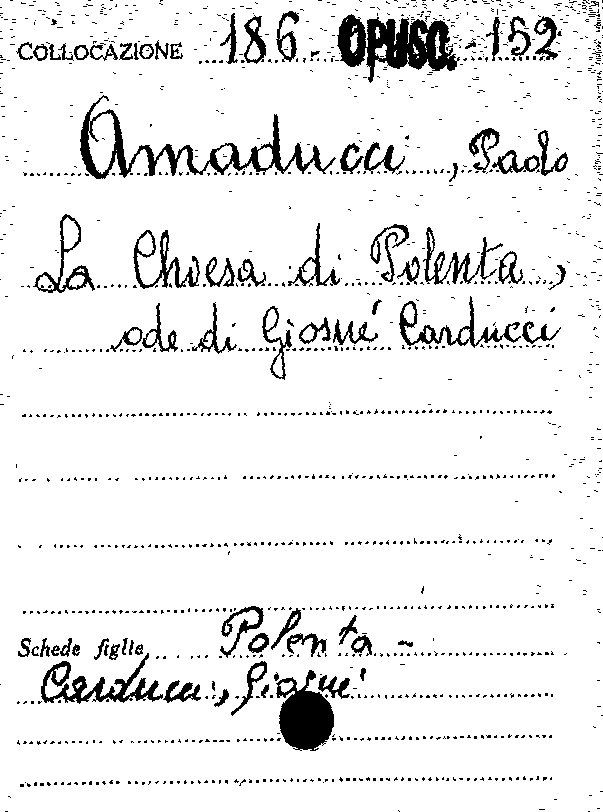 COLLOCAZIONE 186. OPUSC. 152
Amaducci, Paolo
La Chiesa di Polenta,
ode di Giosué Carducci
Schede figlie Polenta -
Carducci, Giosuè